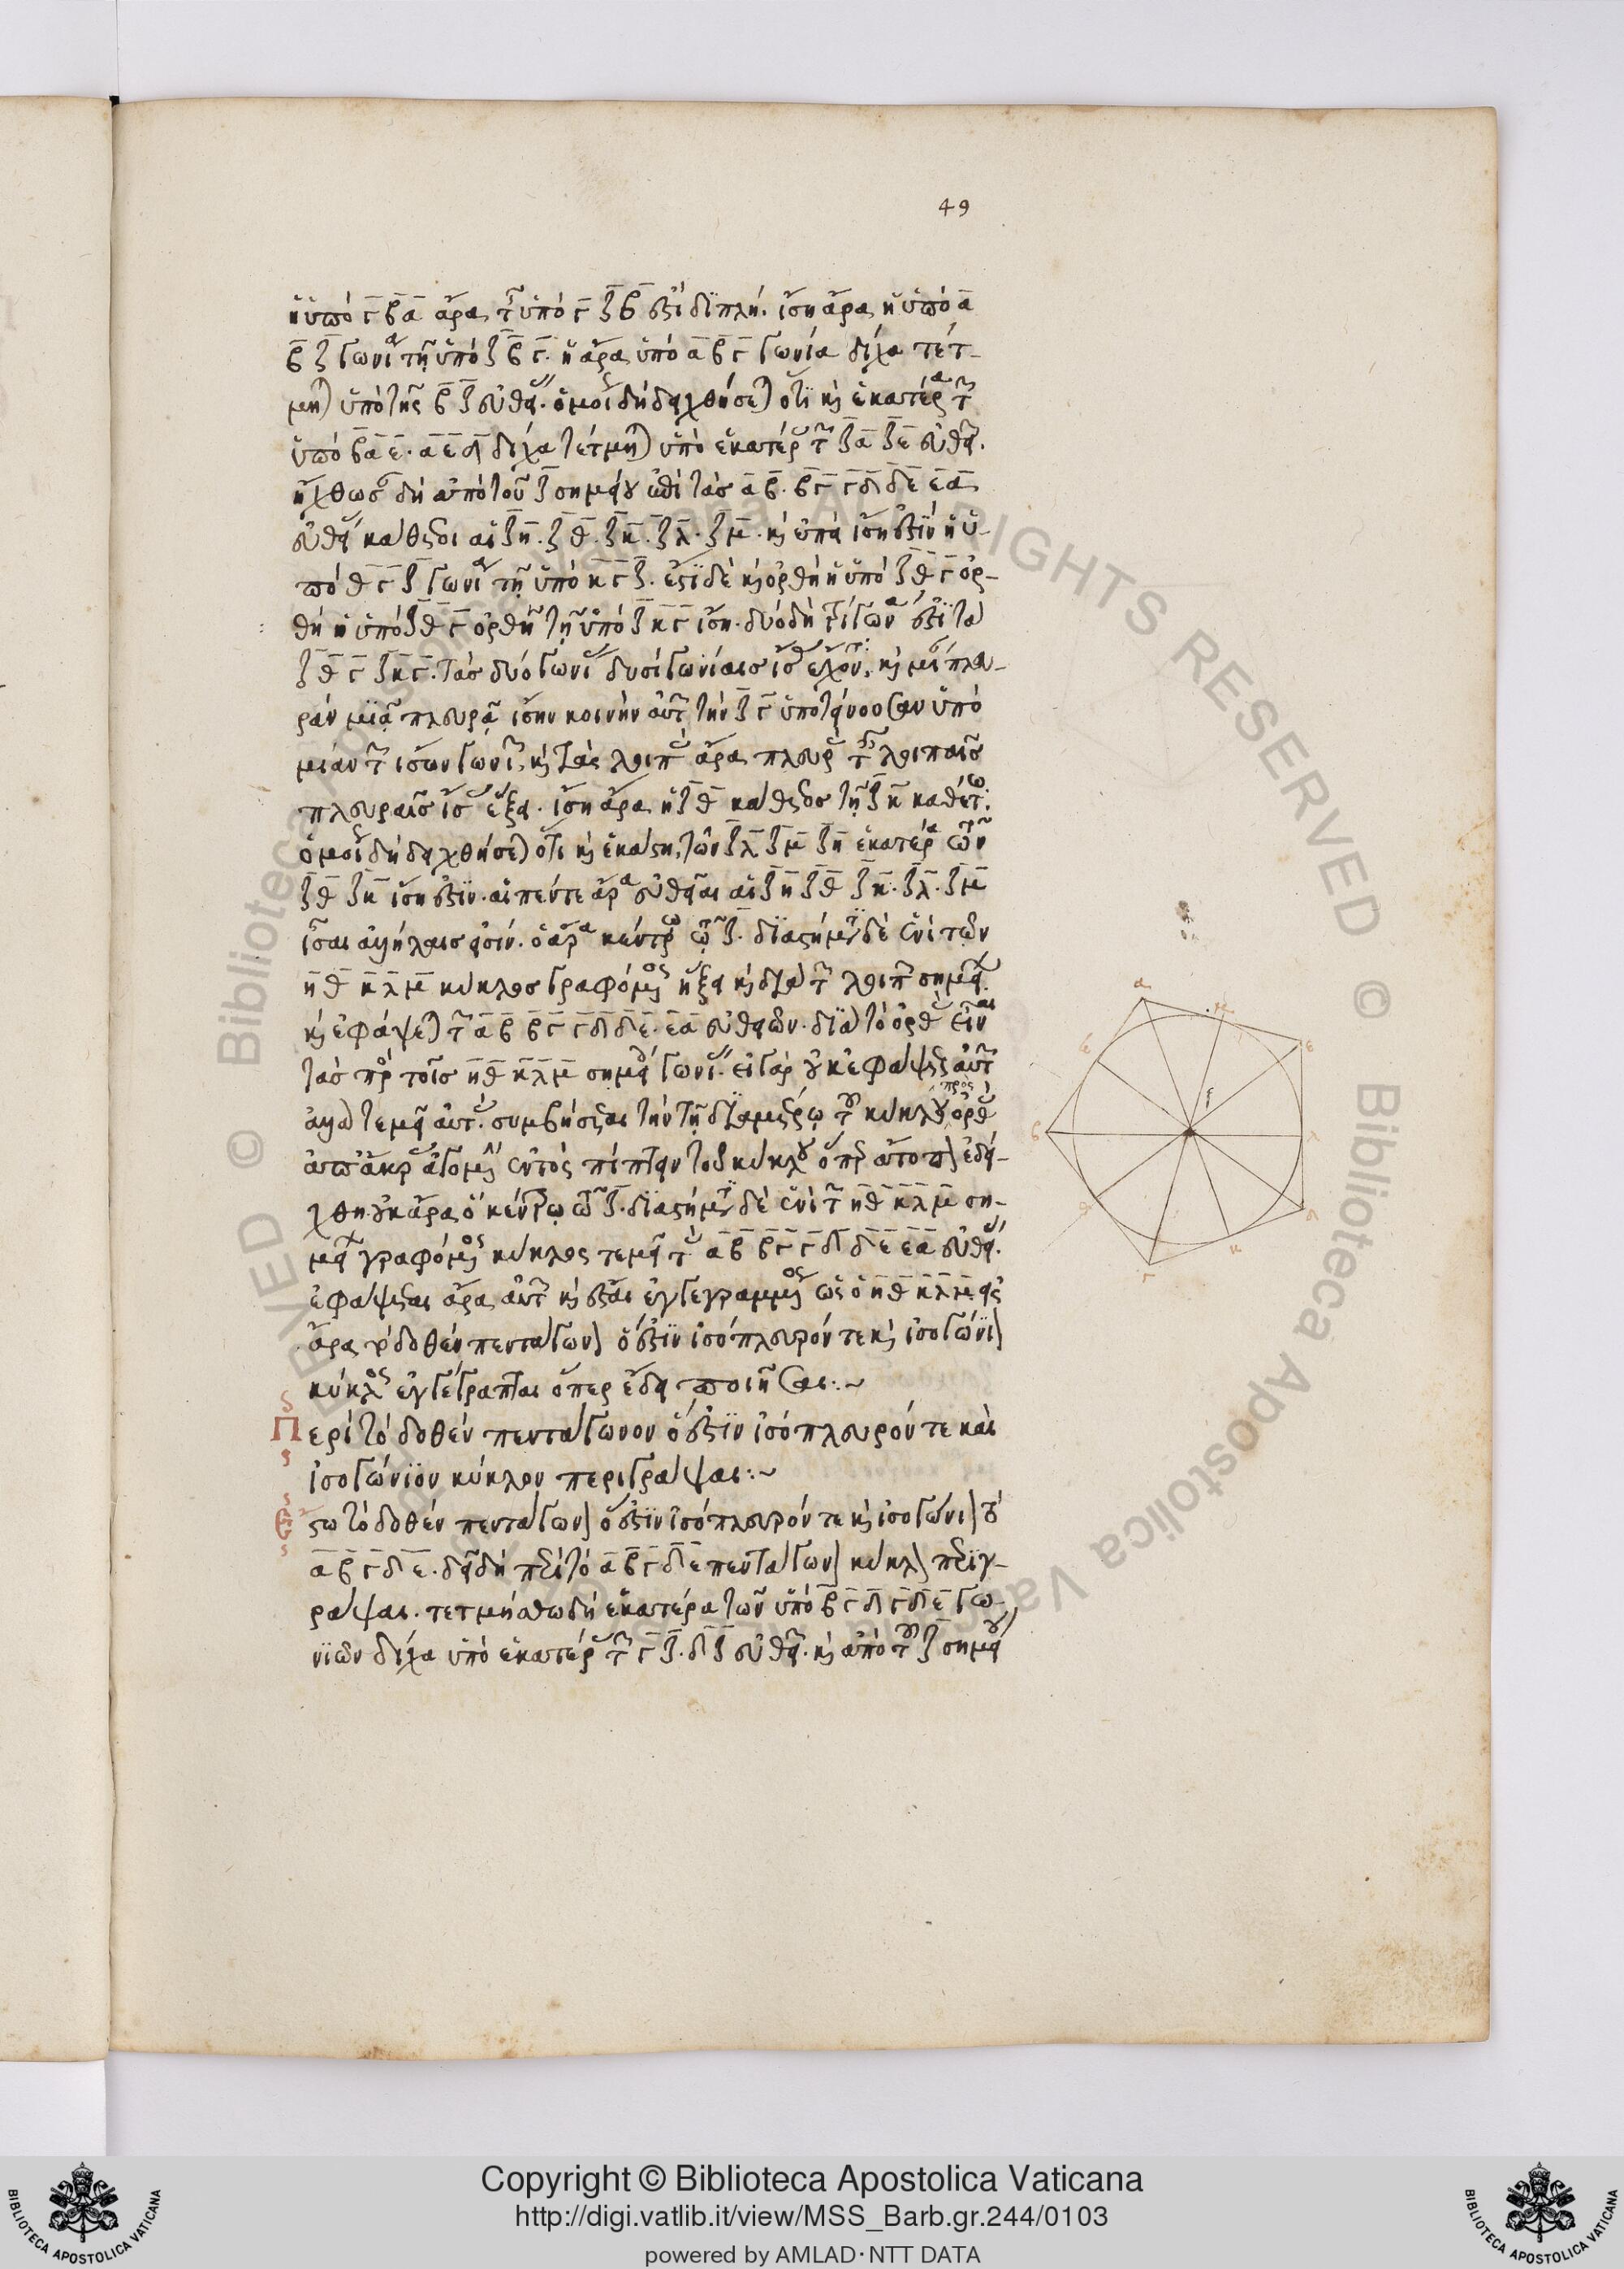 49
ἡ ὑπὸ γ̅β̅α̅ ἄρα τῆς ὑπὸ γ̅ζ̅β̅ ἐστὶ διπλῆ. ἴση ἄρα ἡ ὑπὸ α̅
β̅ζ̅ γωνία τῇ ὑπὸ ζ̅β̅γ̅. ἡ ἄρα ὑπὸ α̅β̅γ̅ γωνία δίχα τέτ-
μηται ὑπὸ τῆς β̅ζ̅ εὐθείας. ὁμοίως δὴ δειχθήσεται ὅτι καὶ ἑκατέρα τῶν
ὑπὸ β̅α̅ε̅. α̅ε̅δ̅ δίχα τέτμηται ὑπὸ ἑκατέρας τῶν ζ̅α̅ ζ̅ε̅ εὐθειῶν.
ἤχθωσαν δὴ ἀπὸ τοῦ ζ̅ σημείου ἐπὶ τὰς α̅β̅. β̅γ̅ γ̅δ̅ δ̅ε̅ ε̅α̅
εὐθείας κάθετοι αἱ ζ̅η̅. ζ̅θ̅. ζ̅κ̅. ζ̅λ̅. ζ̅μ̅. καὶ ἐπεὶ ἴση ἐστὶν ἡ ὑ-
πὸ θ̅γ̅ζ̅ γωνία τῇ ὑπὸ κ̅γ̅ζ̅. ἐστὶ δὲ καὶ ὀρθὴ ἡ ὑπὸ ζ̅θ̅γ̅ ὀρ-
θὴ ἡ ὑπὸ ζ̅θ̅γ̅ ὀρθῇ τῇ ὑπὸ ζ̅κ̅γ̅ ἴση. δύο δὴ τρίγωνά ἐστι τὰ
ζ̅θ̅γ̅ ζ̅κ̅γ̅. τὰς δύο γωνίας δυσὶ γωνίαις ἴσας ἔχοντα. καὶ μίαν πλευ-
ρὰν μιᾷ πλευρᾷ ἴσην κοινὴν αὐτῶν τὴν ζ̅γ̅ ὑποτείνουσαν ὑπὸ
μίαν τῶν ἴσων γωνιῶν. καὶ τὰς λοιπὰς ἄρα πλευρὰς ταῖς λοιπαῖς
πλευραῖς ἴσας ἕξει. ἴση ἄρα ἡ ζ̅θ̅ κάθετος τῇ ζ̅κ̅ καθέτῳ:
ὁμοίως δὴ δειχθήσεται ὅτι καὶ ἑκάστη τῶν ζ̅λ̅ ζ̅μ̅ ζ̅η̅ ἑκατέρα τῶν
ζ̅θ̅ ζ̅κ̅ ἴση ἐστὶν. αἱ πέντε ἄρα εὐθεῖαι αἱ ζ̅η̅ ζ̅θ̅ ζ̅κ̅. ζ̅λ̅. ζ̅μ̅
ἴσαι ἀλλήλαις εἰσίν. ὁ ἄρα κέντρῳ τῷ ζ̅. διαστήματι δὲ ἑνὶ τῶν
η̅ θ̅ κ̅ λ̅ μ̅ κύκλος γραφόμενος ἥξει καὶ διὰ τῶν λοιπῶν σημείων.
καὶ ἐφάψεται τῶν α̅β̅ β̅γ̅ γ̅δ̅ δ̅ε̅. ε̅α̅ εὐθειῶν. διὰ τὸ ὀρθὰς εἶναι
τὰς πρὸς τοῖς η̅ θ̅ κ̅ λ̅ μ̅ σημείοις γωνίας. εἰ γὰρ οὐκ ἐφάψεται αὐτῶν
ἀλλὰ τεμεῖ αὐτὰς. συμβήσεται τὴν τῇ διαμέτρῳ τοῦ κύκλου πρὸς ὀρθὰς
ἀπ' ἄκρας ἀγομένην ἐντὸς πίπτειν τοῦ κύκλου ὅπερ ἄτοπον ἐδεί-
χθη. οὐκ ἄρα ὁ κέντρῳ τῷ ζ̅. διαστήματι δὲ ἑνὶ τῶν η̅ θ̅ κ̅ λ̅ μ̅ ση-
μείων γραφόμενος κύκλος τεμεῖ τὰς α̅β̅ β̅γ̅ γ̅δ̅ δ̅ε̅ ε̅α̅ εὐθείας.
ἐφάψεται ἄρα αὐτῶν καὶ ἔσται ἐγγεγραμμένος ὡς ὁ η̅ θ̅ κ̅ λ̅ μ̅ εἰς
ἄρα τὸ δοθὲν πεντάγωνον ὅ ἐστιν ἰσόπλευρόν τε καὶ ἰσογώνιον
κύκλος ἐγγέγραπται ὅπερ ἔδει ποιῆσαι:~
Περὶ τὸ δοθὲν πεντάγωνον ὅ ἐστιν ἰσόπλευρόν τε καὶ
ἰσογώνιον κύκλον περιγράψαι:~
Ἔστω τὸ δοθὲν πεντάγωνον ὅ ἐστιν ἰσόπλευρόν τε καὶ ἰσογώνιον τὸ
α̅ β̅ γ̅ δ̅ ε̅. δεῖ δὴ περὶ τὸ α̅ β̅ γ̅ δ̅ ε̅ πεντάγωνον κύκλον περιγ-
ράψαι. τετμήσθω δὴ ἑκατέρα τῶν ὑπὸ β̅γ̅δ̅ γ̅δ̅ε̅ γω-
νιῶν δίχα ὑπὸ ἑκατέρας τῶν γ̅ζ̅. δ̅ζ̅ εὐθειῶν. καὶ ἀπὸ τοῦ ζ̅ σημείου
Copyright © Biblioteca Apostolica Vaticana
http://digi.vatlib.it/view/MSS_Barb.gr.244/0103
powered by AMLAD·NTT DATA
BIBLIOTECA APOSTOLICA VATICANA
BIBLIOTECA APOSTOLICA VATICANA